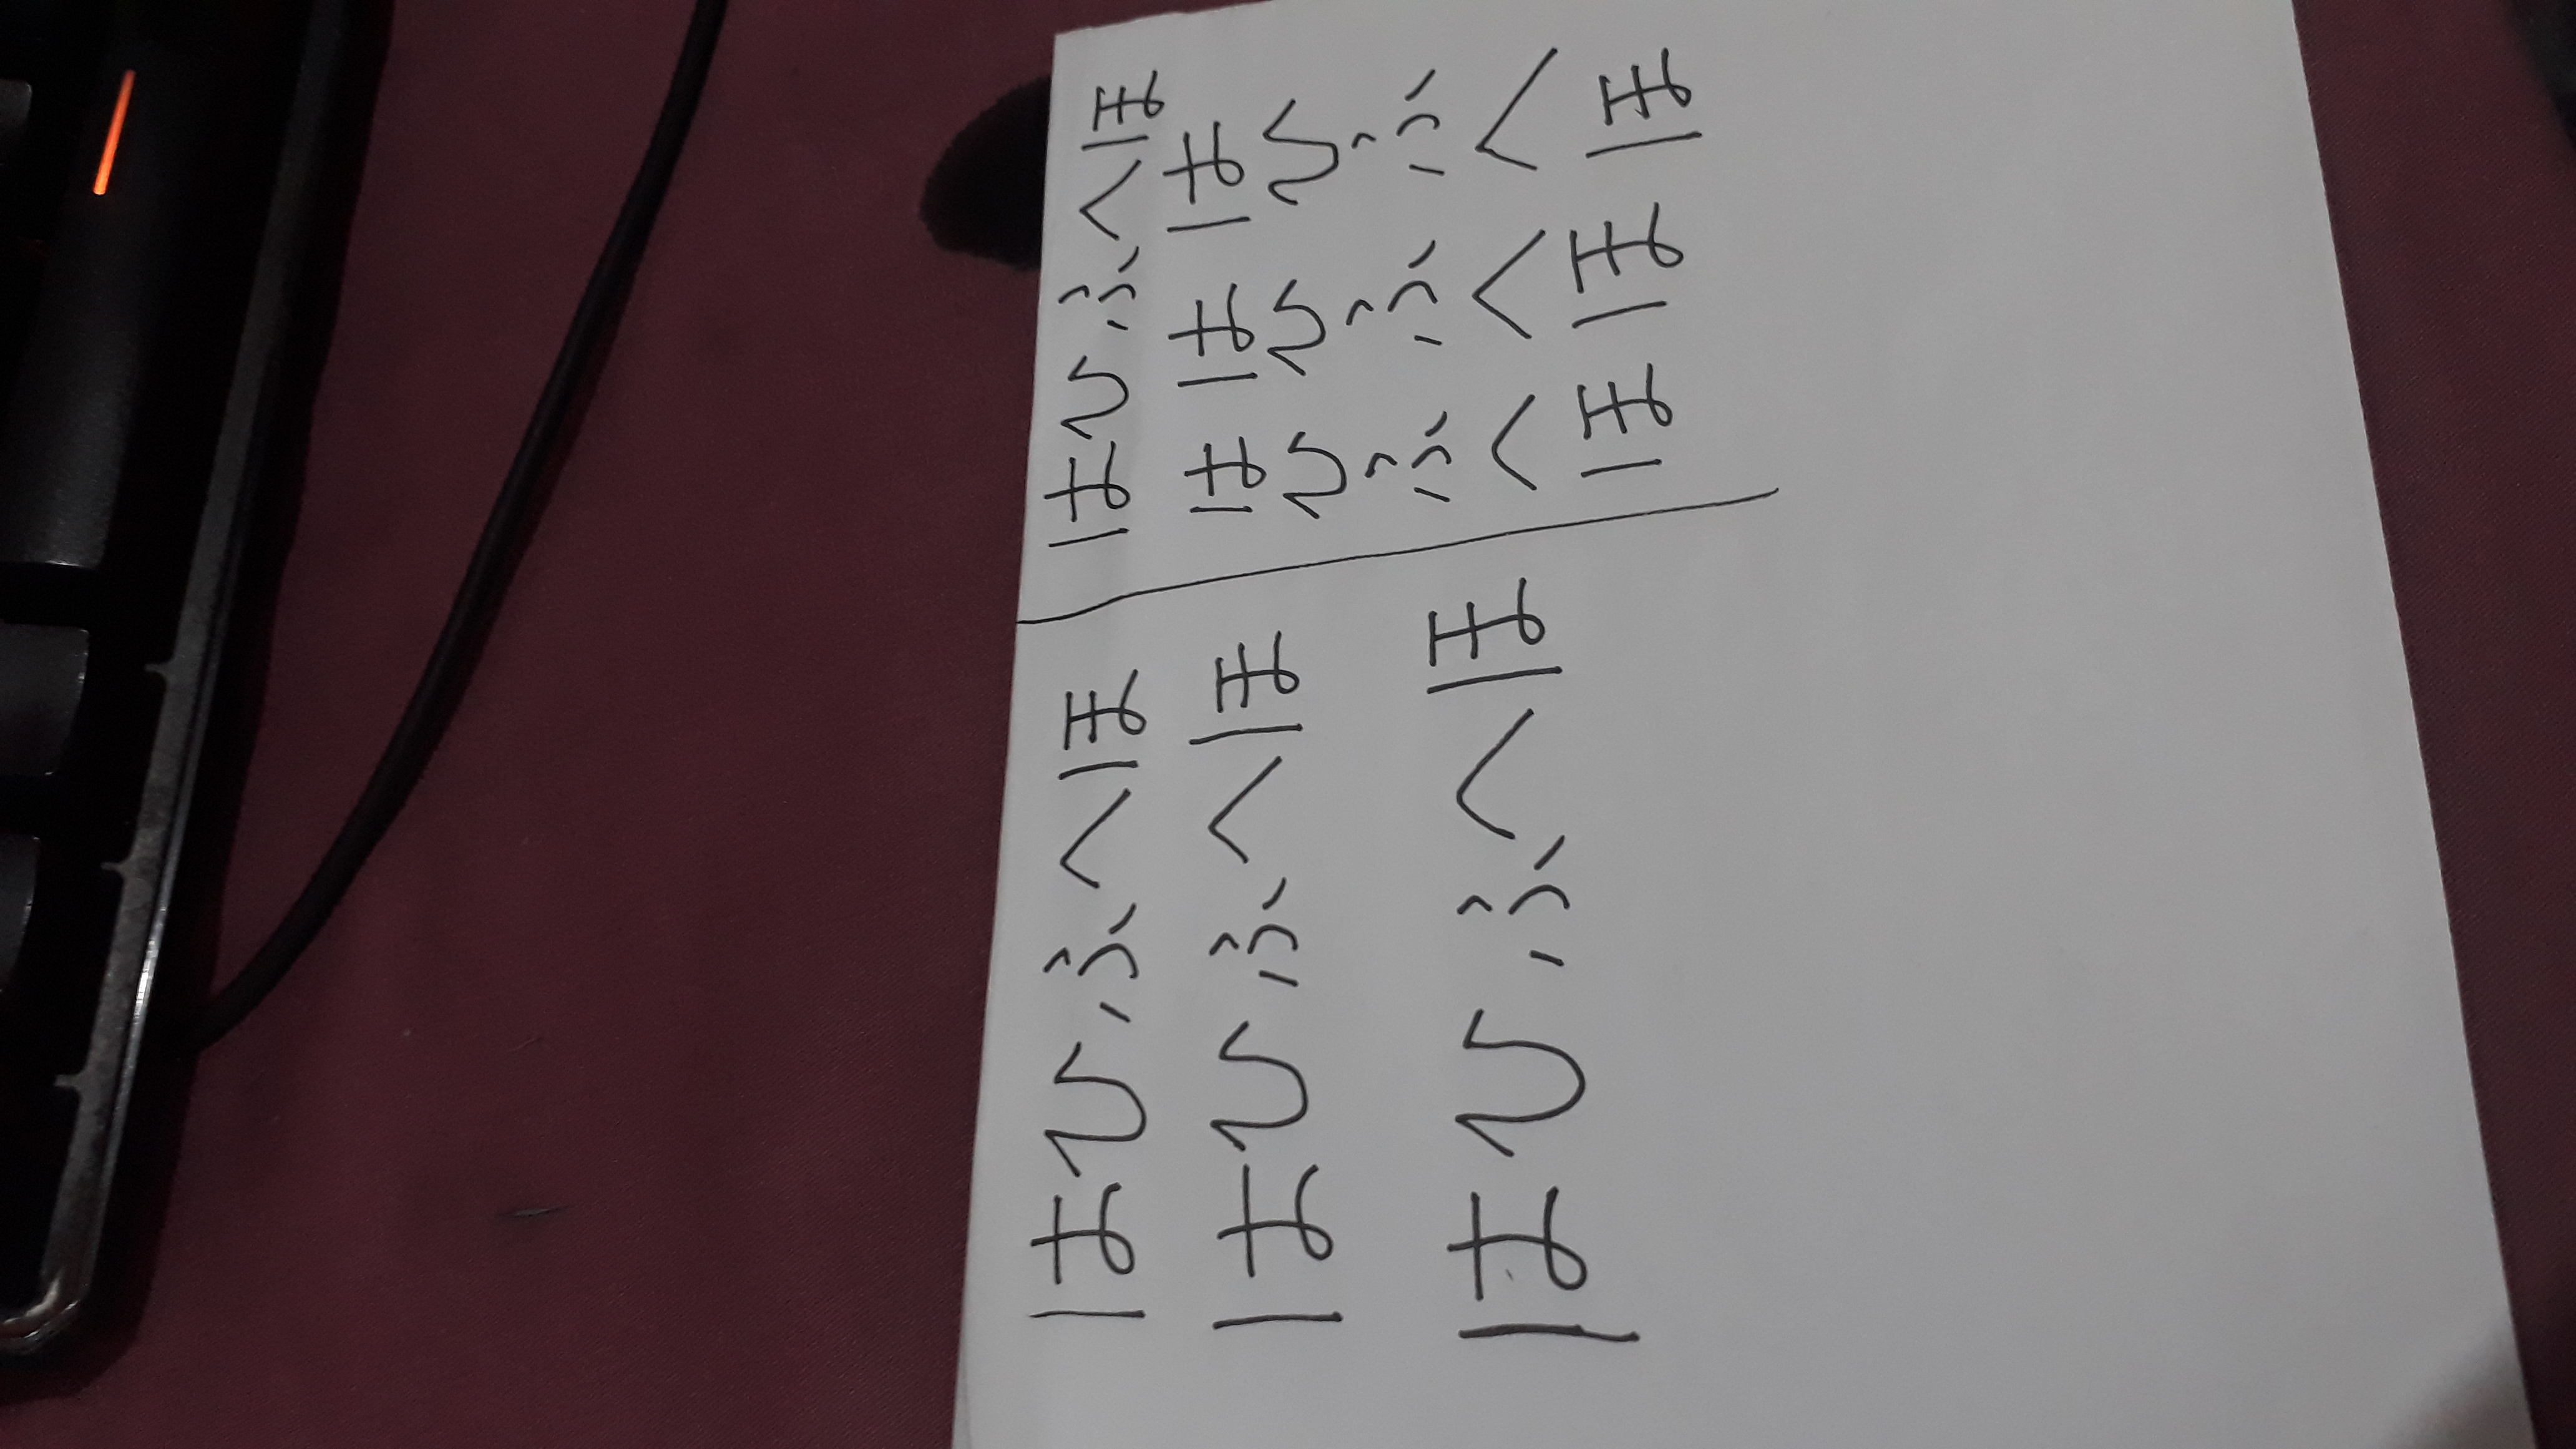 はひふへほ
はひふへほ
はひふへほ
はひふへほ
は は は
ひ ひ ひ
ふ ふ ふ
へ へ へ
ほ ほ ほ